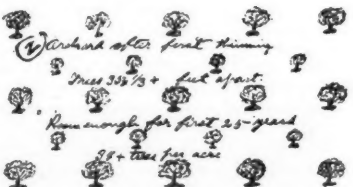 (2) Orchard after first thinning
Trees 33⅓ + feet apart.
Room enough for first 25 years
98 + trees per acre